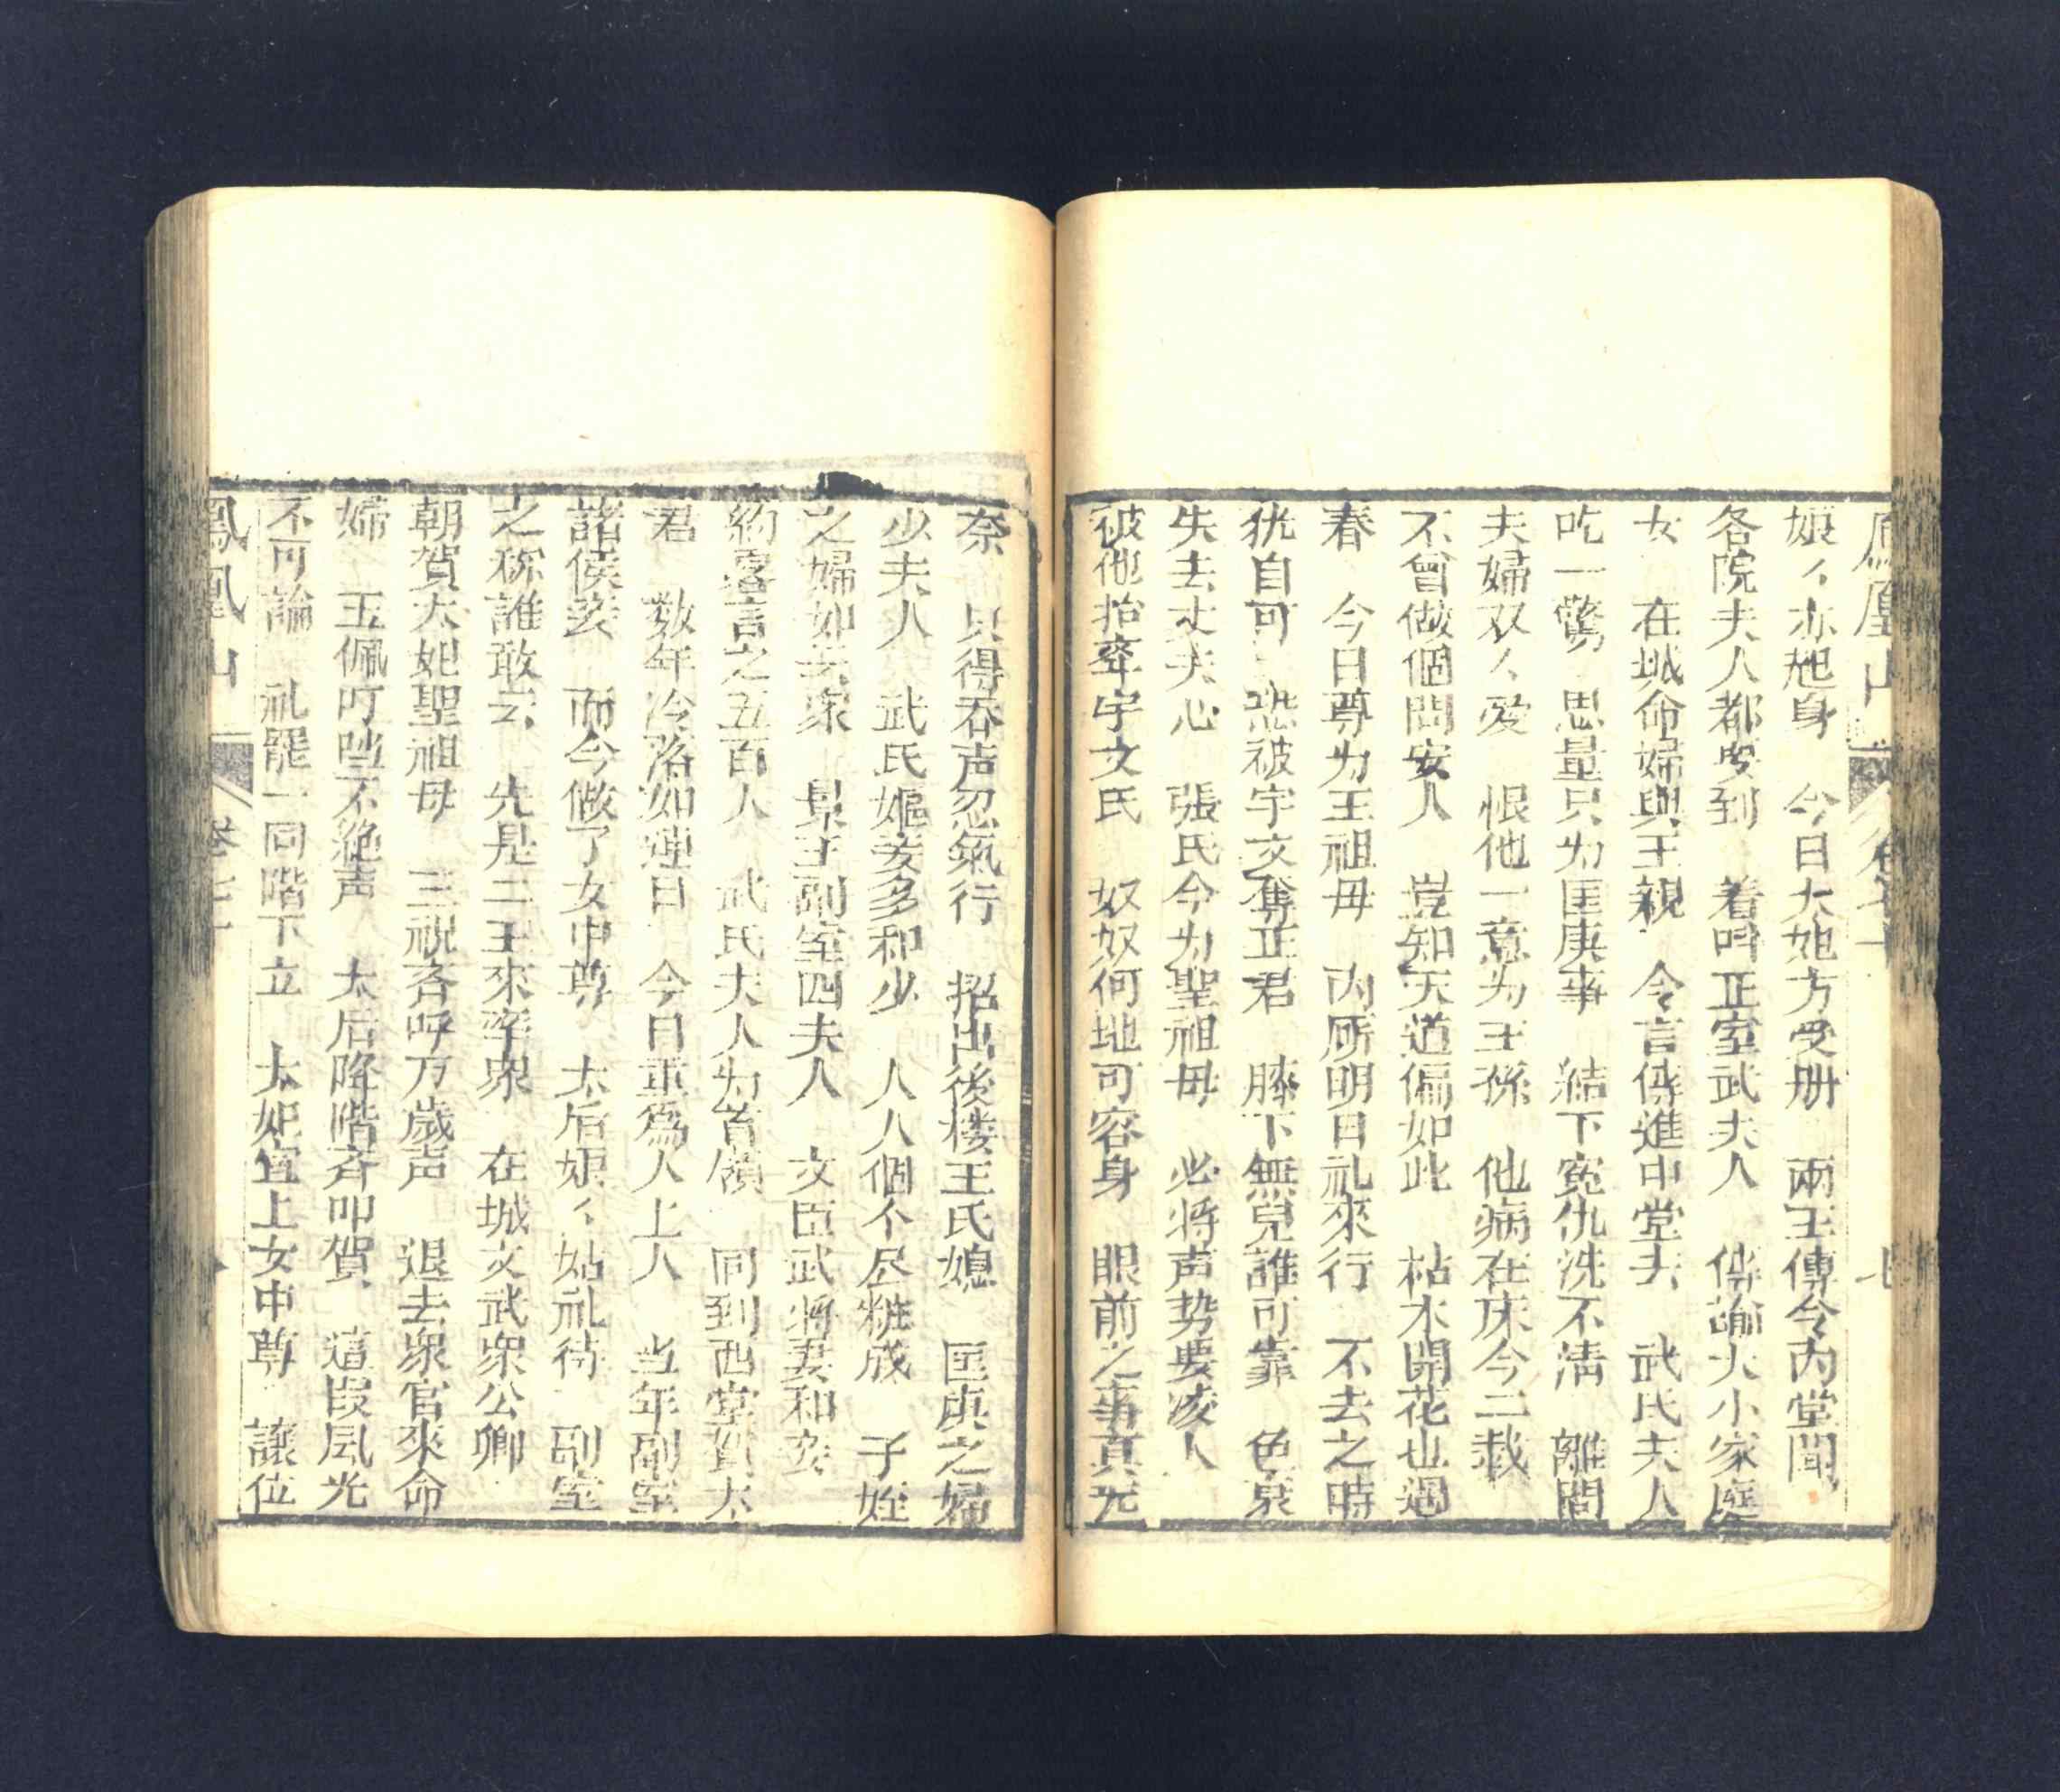 鳳凰山 卷七十 七
娘々亦起身 今日太妃方受册 兩王傳令内堂聞
各院夫人都要到 着呌正室武夫人 傳諭大小家庭
女 在城命婦與王親 令言傳進中堂去 武氏夫人
吃一驚 思量只为匡庚事 結下寃仇洗不清 離間
夫婦双々愛 恨他一意为王孫 他病在床今二载
不曾做個問安人 豈知天道偏如此 枯木開花也遇
春 今日尊为王祖母 内厮明日礼來行 不去之時
犹自可 恐被宇文奪正君 膝下無兒誰可靠 色衰
失去丈夫心 張氏今为聖祖母 必將声势要凌人
彼他抬举宇文氏 奴奴何地可容身 眼前之事真无
奈 只得吞声忍氣行 招出後楼王氏媳 匡庚之婦
少夫人 武氏嫗妾多和少 人人個个尽粧成 子姪
之婦如云衆 景王副室四夫人 文臣武將妻和妾
約畧言之五百人 武氏夫人为首領 同到西堂賀太
君 数年冷落如連日 今日重爲人上人 当年副室
諸侯妾 而今做了女中尊 太后娘々姑礼待 副室
之称誰敢云 先是二王來率衆 在城文武衆公卿
朝賀太妃聖祖母 三祝吝呼万歲声 退去衆官來命
婦 玉佩叮噹不絶声 太后降階齐叩賀 這段風光
不可論 礼罷一同階下立 太妃宜上女中尊 讓位
鳳凰山 卷七十